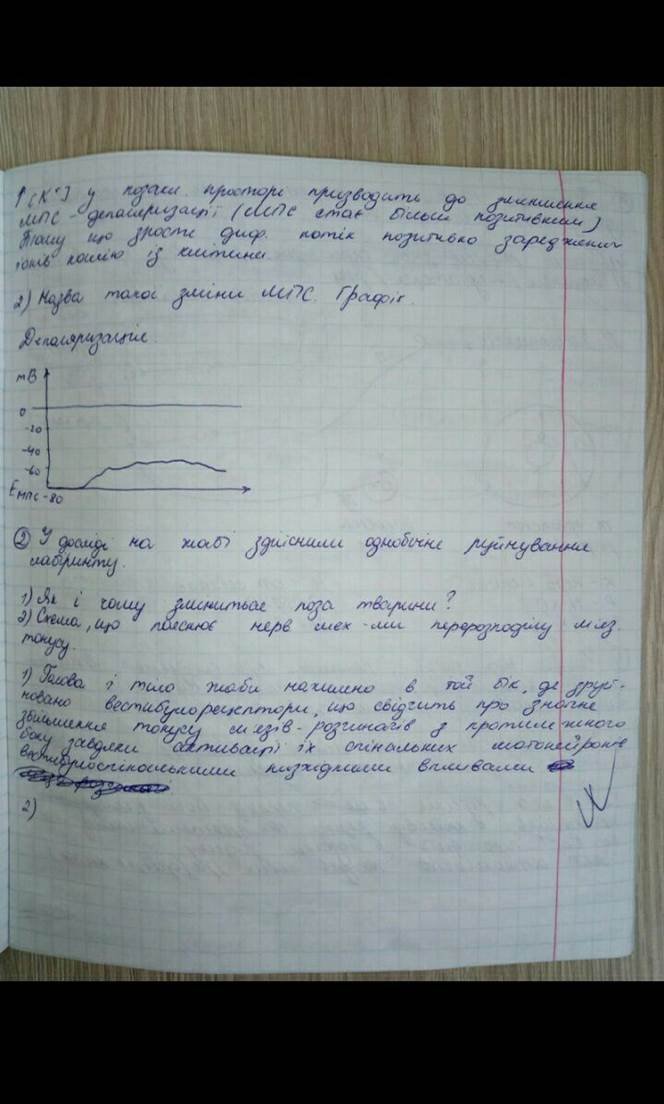 ↑[K⁺] у позакл. просторі призводить до зменшення
МПС - деполяризації (МПС стає більш позитивним)
Тому що зросте диф. потік позитивно заряджених
іонів калію із клітини.
2) Назва такої зміни МПС. Графік.
Деполяризація.
mB
0
-20
-40
-60
Eмпс -80
② У досліді на жабі здійснили однобічне руйнування
лабіринту.
1) Як і чому зміниться поза тварини?
2) Схема, що пояснює нерв мех-ми перерозподілу м'яз.
тонусу.
1) Голова і тіло жаби нахилено в той бік, де зруй-
новано вестибулорецептори, що свідчить про значне
збільшення тонусу м'язів-розгиначів з протилежного
боку завдяки активації їх спінальних мотонейронів
вестибулоспінальними низхідними впливами
2)